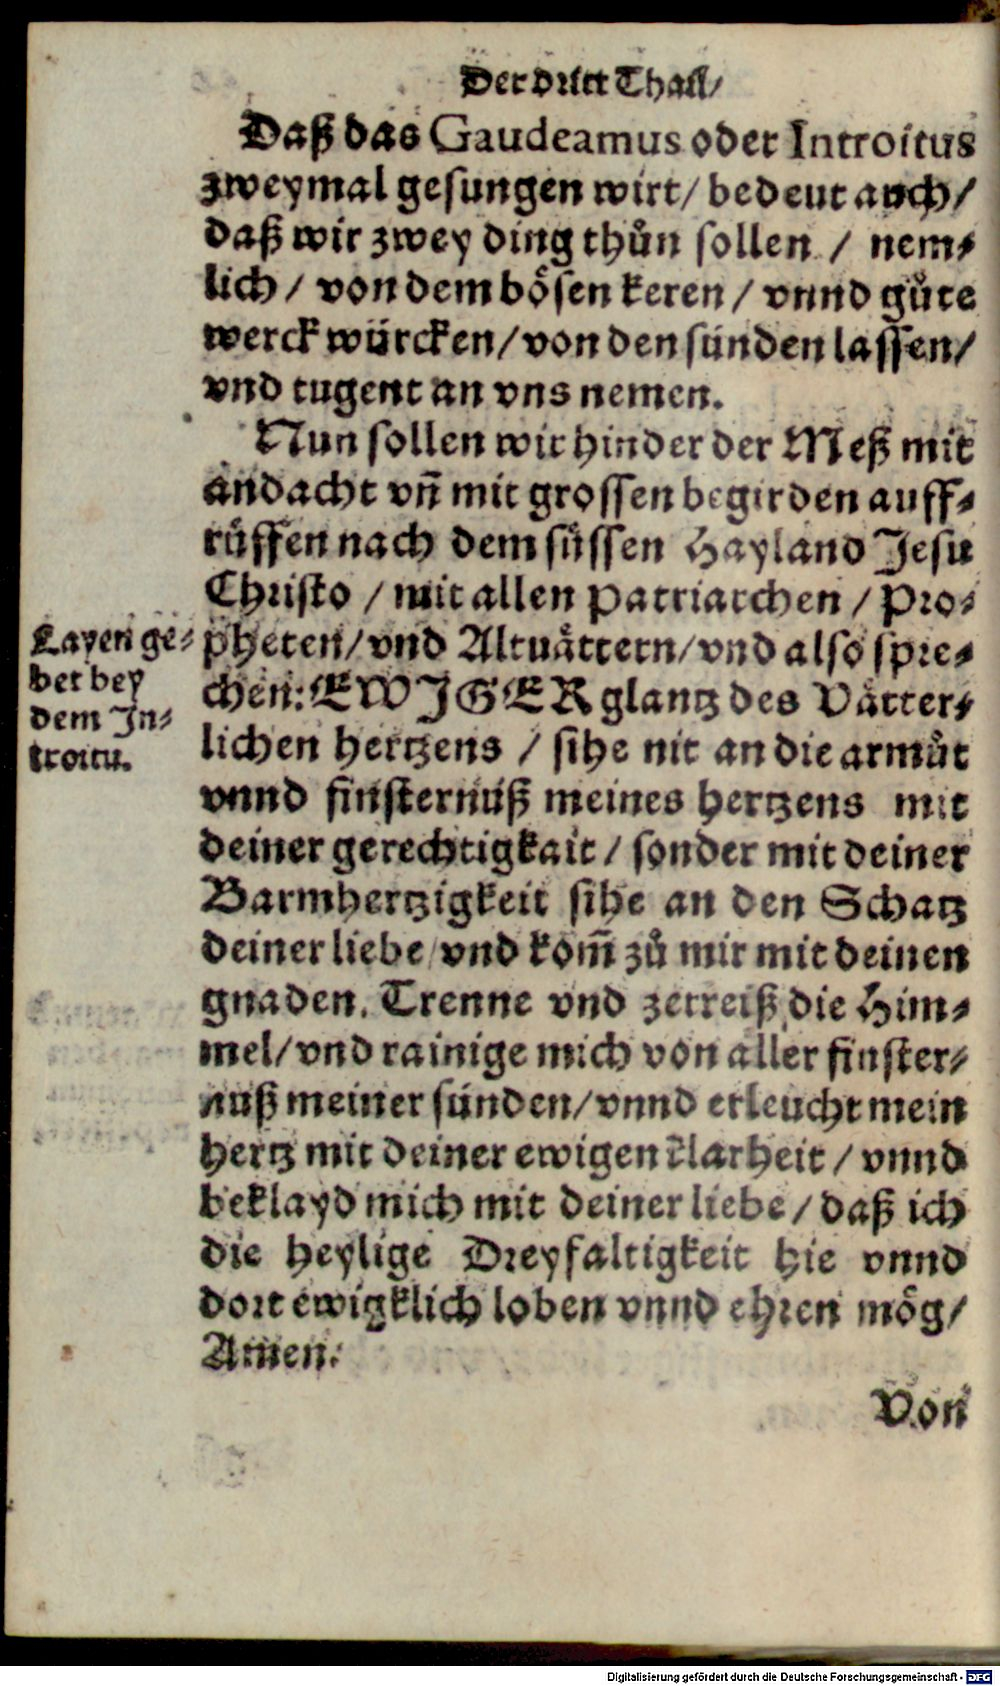 Der dritt Thail/
Daß das Gaudeamus oder Introitus
zweymal gesungen wirt/ bedeut auch/
daß wir zwey ding thůn sollen / nem⸗
lich / von dem bösen keren / vnnd gůte
werck würcken/ von den sünden lassen/
vnd tugent an vns nemen.
Nun sollen wir hinder der Meß mit
andacht vn̄ mit grossen begirden auff⸗
růffen nach dem süssen Hayland Jesu
Christo / mit allen Patriarchen / Pro⸗
pheten/ vnd Altuättern/ vnd also spre⸗
chen: EWIGER glantz des Vätter⸗
lichen hertzens / sihe nit an die armůt
vnnd finsternuß meines hertzens mit
deiner gerechtigkait / sonder mit deiner
Barmhertzigkeit sihe an den Schatz
deiner liebe/ vnd kom̄ zů mir mit deinen
gnaden. Trenne vnd zerreiß die Him⸗
mel/ vnd rainige mich von aller finster⸗
nuß meiner sünden/ vnnd erleucht mein
hertz mit deiner ewigen klarheit / vnnd
beklayd mich mit deiner liebe / daß ich
die heylige Dreyfaltigkeit hie vnnd
dort ewigklich loben vnnd ehren mög/
Amen.
Von
Layen ge⸗
bet bey
dem In⸗
troitu.
Digitalisierung gefördert durch die Deutsche Forschungsgemeinschaft - DFG